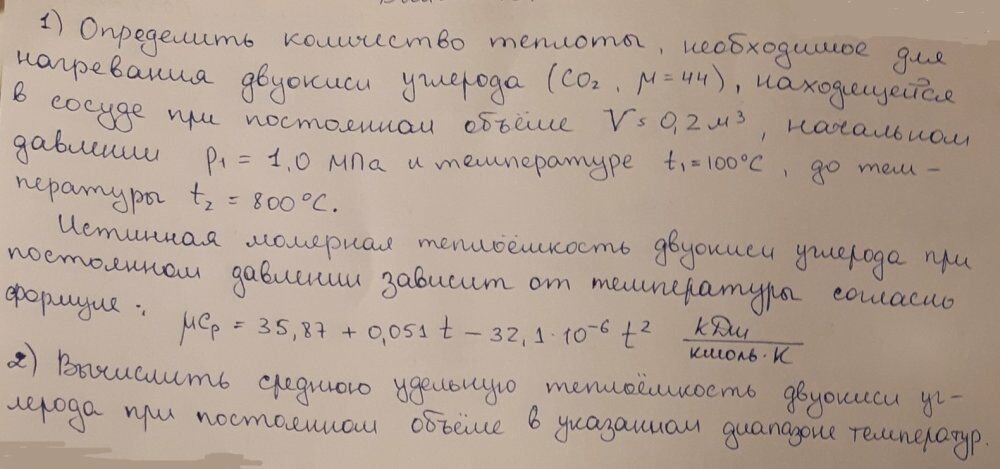 1) Определить количество теплоты, необходимое для
нагревания двуокиси углерода (CO₂, μ=44), находящейся
в сосуде при постоянном объёме V = 0,2 м³, начальном
давлении p₁ = 1,0 МПа и температуре t₁=100°C, до тем-
пературы t₂ = 800°C.
Истинная молярная теплоёмкость двуокиси углерода при
постоянном давлении зависит от температуры согласно
формуле:
μcₚ = 35,87 + 0,051 t − 32,1·10⁻⁶ t² кДж/кмоль·К
2) Вычислить среднюю удельную теплоёмкость двуокиси уг-
лерода при постоянном объёме в указанном диапазоне температур.